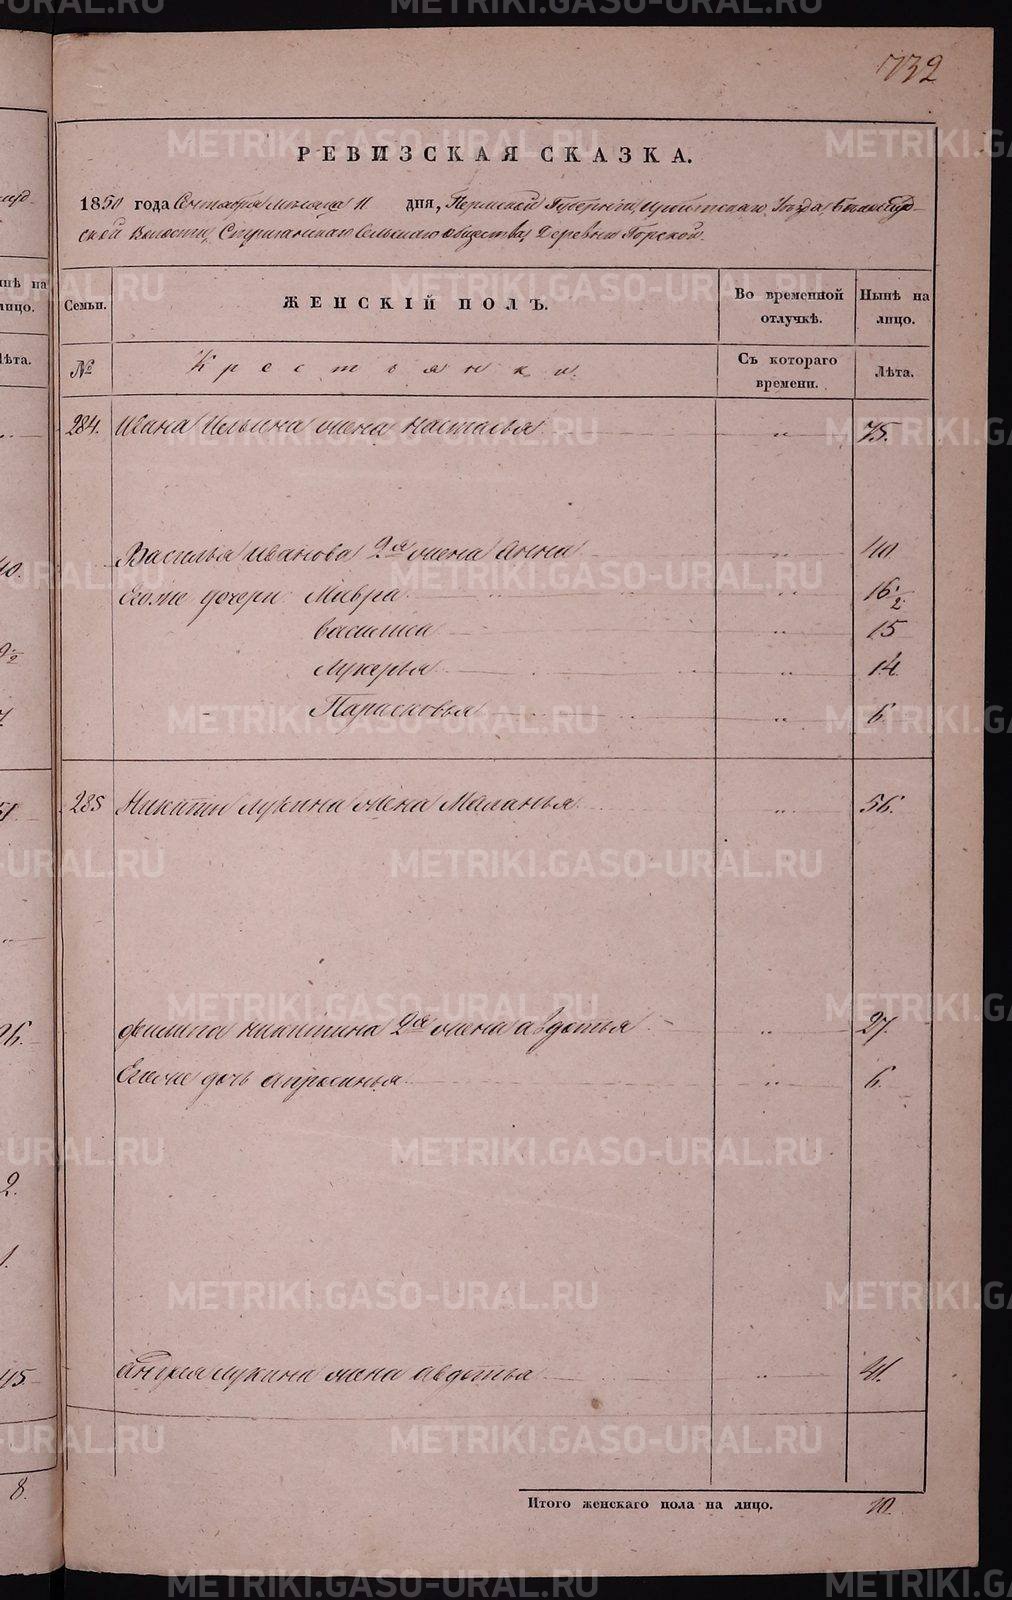 732
РЕВИЗСКАЯ СКАЗКА.
1850 года Сентября месяца 11 дня, Пермской Губернии, Ирбитскаго Уезда,
ской Волости, Сельскаго общества, Деревни Горской.
Семьи.
ЖЕНСКІЙ ПОЛЪ.
Во временной отлучкѣ.
Нынѣ на лицо.
№
Крестьянки
Съ котораго времени.
Лѣта.
284. Ивана Ильина жена Насталья " 75.
Василья Иванова 2я жена Анна " 40
Егоже дочери Мавра " 16 1/2
Василиса " 15
Лукерья " 14
Парасковья " 6
285 Никиты Лукина жена Маланья " 56.
Филипа Никитина 2я жена Авдотья " 27
Егоже дочь Апросинья " 6
Андрея Лукина жена Авдотья " 41.
Итого женскаго пола на лицо. 10.
нѣ на
лицо.
Лѣта.
40.
51
26.
2.
1.
45.
8.
METRIKI.GASO-URAL.RU